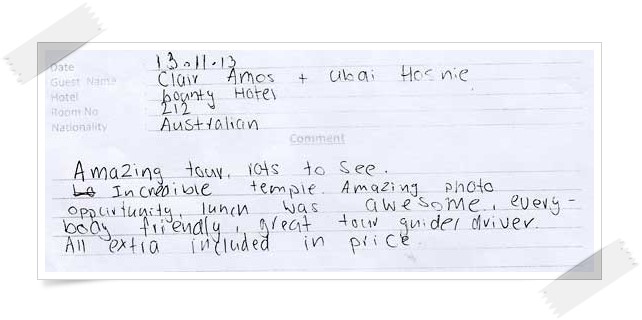 Date 13.11.13
Guest Name Clair Amos + Ubai Hosnie
Hotel bounty Hotel
Room No 212
Nationality Australian
Comment
Amazing tour, lots to see.
Incredible temple. Amazing photo
oppurtunity, lunch was awesome, every-
body friendly, great tour guide/driver.
All extra included in price.